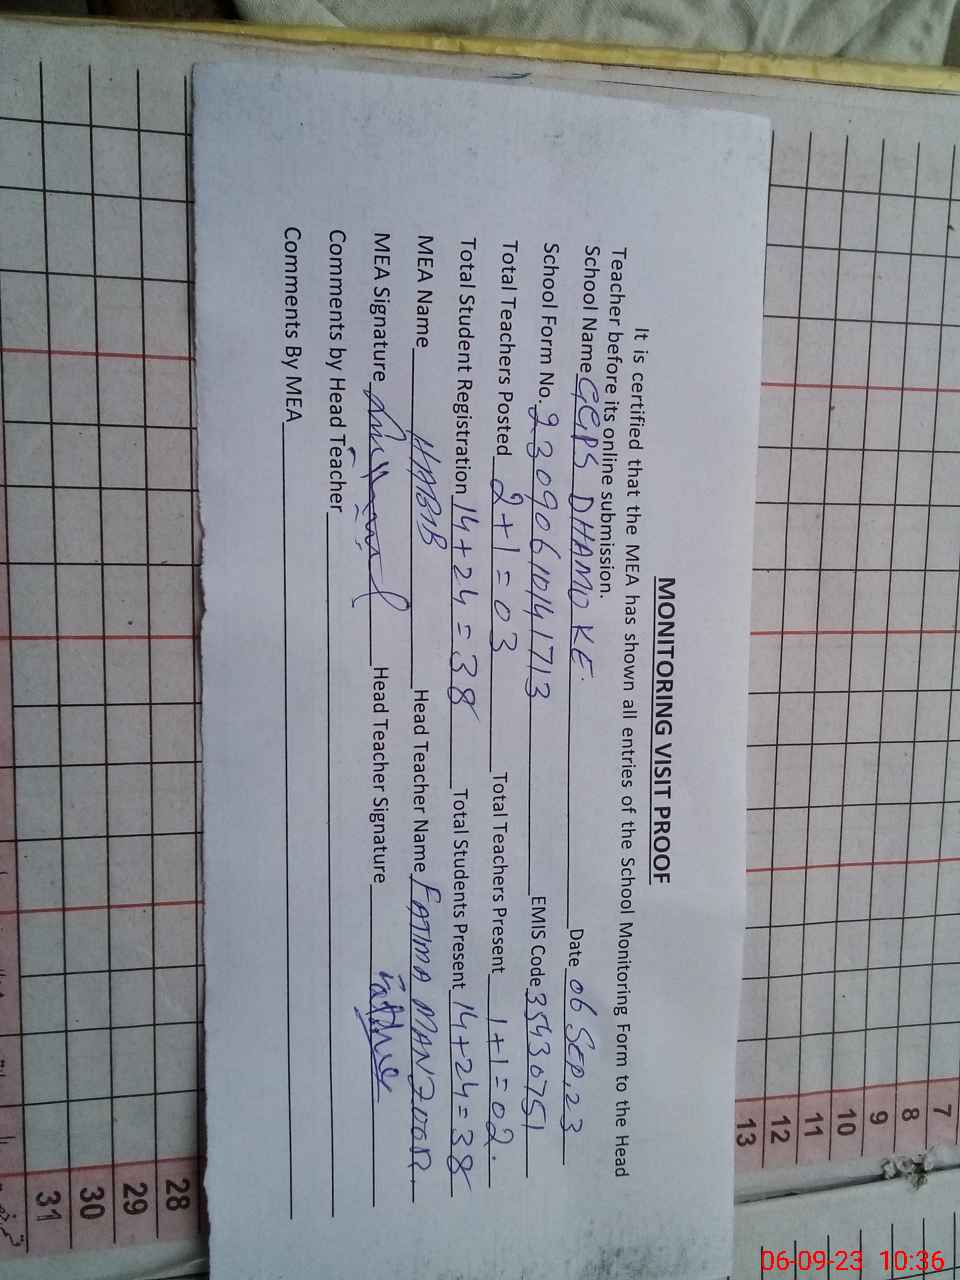 MONITORING VISIT PROOF
It is certified that the MEA has shown all entries of the School Monitoring Form to the Head
Teacher before its online submission.
School Name GGPS DHAMO KE. Date 06 SEP, 23
School Form No. 23090610141713 EMIS Code 35430751
Total Teachers Posted 2+1=03 Total Teachers Present 1+1=02.
Total Student Registration 14+24=38 Total Students Present 14+24=38
MEA Name HABIB Head Teacher Name FATIMA MANZOOR.
MEA Signature Head Teacher Signature
Comments by Head Teacher
Comments By MEA
7
8
9
10
11
12
13
28
29
30
31
06-09-23 10:36